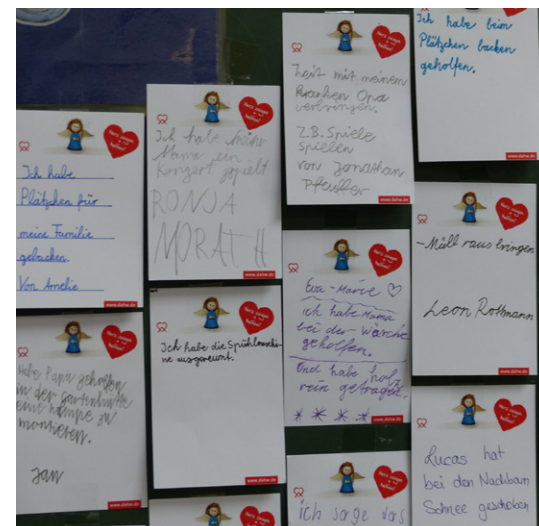 Ich habe
Plätzchen für
meine Familie
gebacken.
Von Amelie
www.dahw.de
Habe Papa geholfen
in der Gartenhütte
eine Lampe zu
montieren.
Jan
www.dahw.de
Ich habe
Mama ein
Konzert gespielt
RONJA
MORATH
www.dahw.de
Ich habe die Spühlmaschi-
ne ausgeräumt.
www.dahw.de
Zeit mit meinem
kranken Opa
verbringen.
z.B. Spiele
spielen
von Jonathan
Pfeuffer
www.dahw.de
Eva-Marie
ich habe Mama
bei der Wäsche
geholfen.
Und habe holz
rein getragen.
www.dahw.de
ich sorge
Ich habe beim
Plätzchen backen
geholfen.
www.dahw.de
-Müll raus bringen
Leon Rottmann
www.dahw.de
Lucas hat
bei den Nachbarn
Schnee geschoben